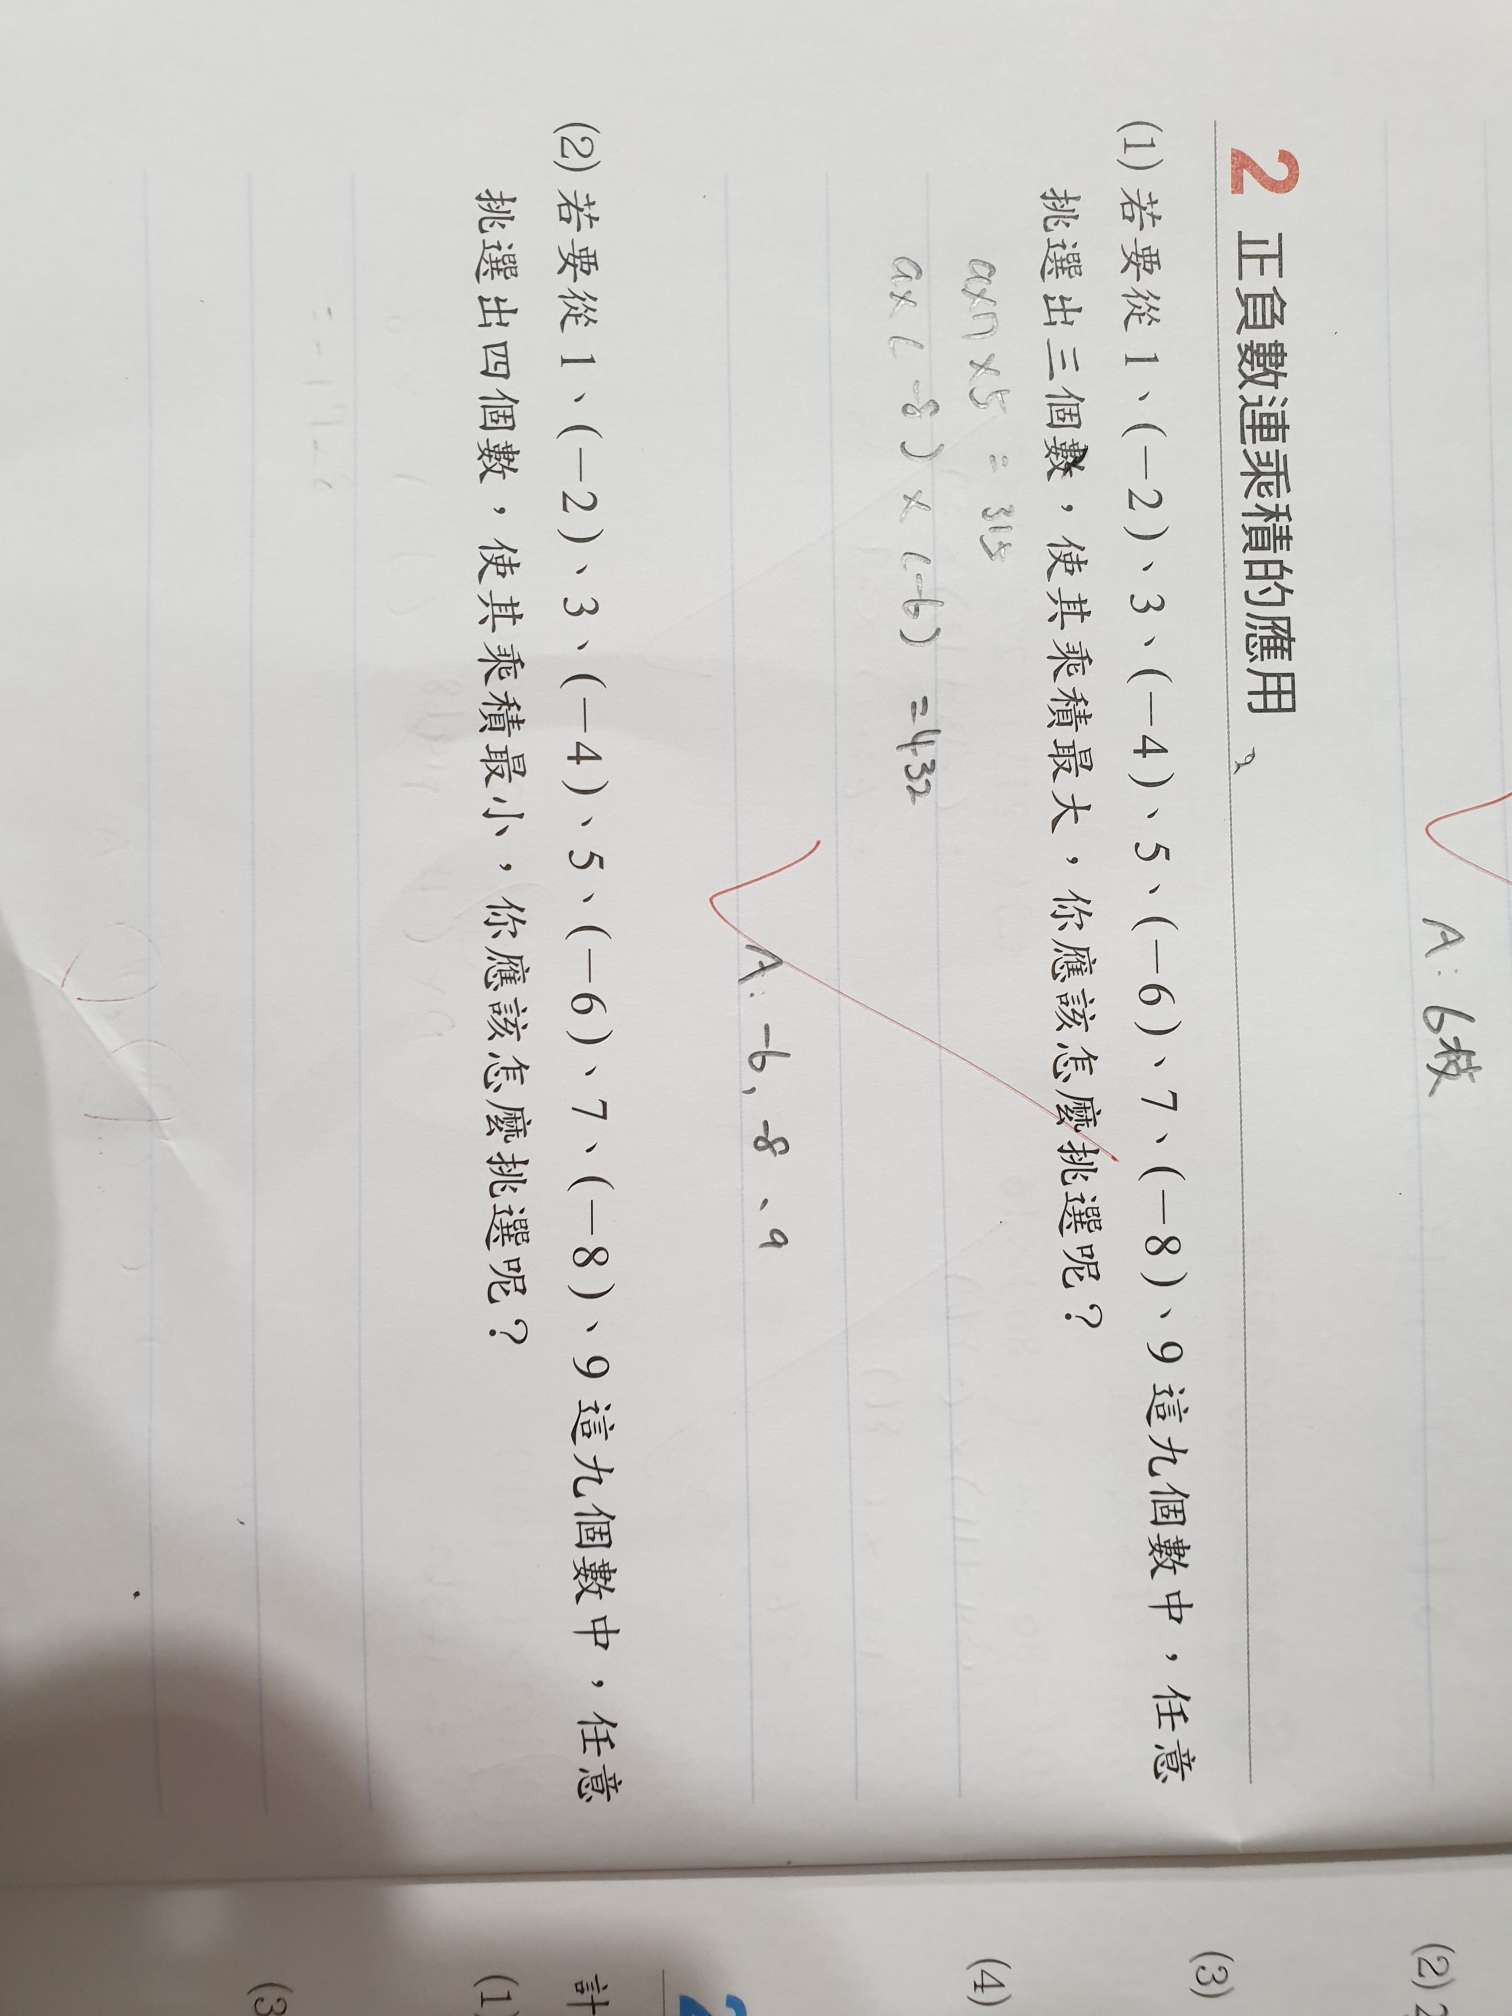 A: 6枝
2 正負數連乘積的應用
(1) 若要從 1、(−2)、3、(−4)、5、(−6)、7、(−8)、9 這九個數中，任意
挑選出三個數，使其乘積最大，你應該怎麼挑選呢？
9×7×5 = 315
9×(-8)×(-6) = 432
A: -6, -8、9
(2) 若要從 1、(−2)、3、(−4)、5、(−6)、7、(−8)、9 這九個數中，任意
挑選出四個數，使其乘積最小，你應該怎麼挑選呢？
(2) 2
(3)
(4)
2
計
(1)
(3